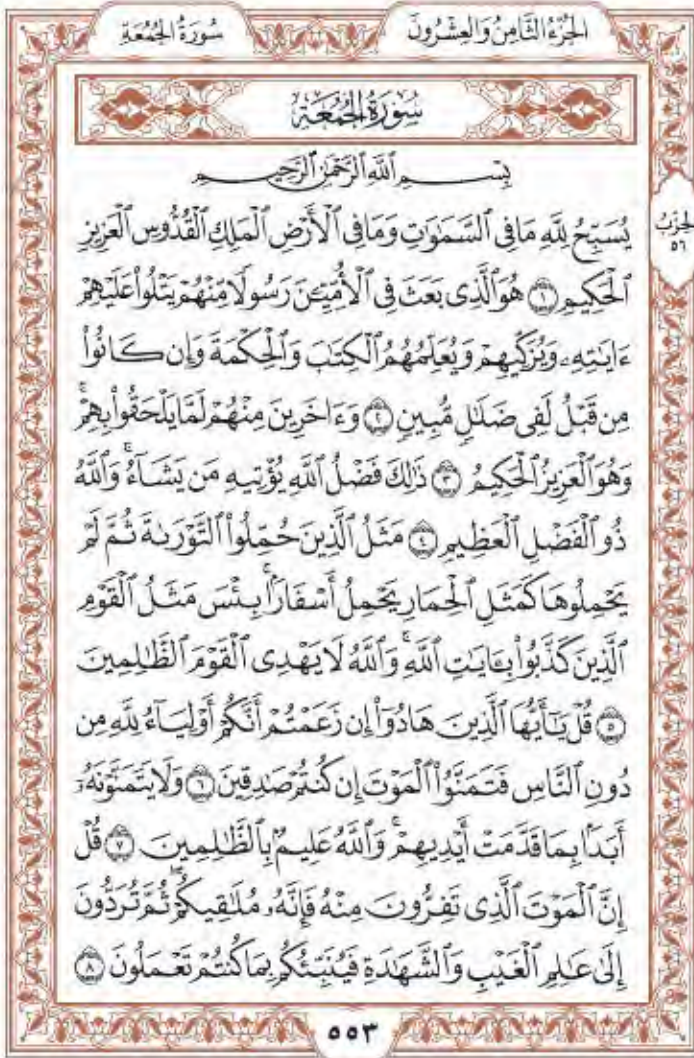 سُورَةُ الجُمُعَةِ الجُزْءُ الثَّامِنُ وَالعِشْرُونَ
سُورَةُ الجُمُعَةِ
بِسْمِ ٱللَّهِ ٱلرَّحْمَٰنِ ٱلرَّحِيمِ
يُسَبِّحُ لِلَّهِ مَا فِي ٱلسَّمَٰوَٰتِ وَمَا فِي ٱلْأَرْضِ ٱلْمَلِكِ ٱلْقُدُّوسِ ٱلْعَزِيزِ
الحِزْبُ
٥٦
ٱلْحَكِيمِ ١ هُوَ ٱلَّذِي بَعَثَ فِي ٱلْأُمِّيِّـۧنَ رَسُولًا مِّنْهُمْ يَتْلُوا۟ عَلَيْهِمْ
ءَايَٰتِهِۦ وَيُزَكِّيهِمْ وَيُعَلِّمُهُمُ ٱلْكِتَٰبَ وَٱلْحِكْمَةَ وَإِن كَانُوا۟
مِن قَبْلُ لَفِي ضَلَٰلٍ مُّبِينٍ ٢ وَءَاخَرِينَ مِنْهُمْ لَمَّا يَلْحَقُوا۟ بِهِمْ ۚ
وَهُوَ ٱلْعَزِيزُ ٱلْحَكِيمُ ٣ ذَٰلِكَ فَضْلُ ٱللَّهِ يُؤْتِيهِ مَن يَشَآءُ ۚ وَٱللَّهُ
ذُو ٱلْفَضْلِ ٱلْعَظِيمِ ٤ مَثَلُ ٱلَّذِينَ حُمِّلُوا۟ ٱلتَّوْرَىٰةَ ثُمَّ لَمْ
يَحْمِلُوهَا كَمَثَلِ ٱلْحِمَارِ يَحْمِلُ أَسْفَارًۢا ۚ بِئْسَ مَثَلُ ٱلْقَوْمِ
ٱلَّذِينَ كَذَّبُوا۟ بِـَٔايَٰتِ ٱللَّهِ ۚ وَٱللَّهُ لَا يَهْدِي ٱلْقَوْمَ ٱلظَّٰلِمِينَ
٥ قُلْ يَٰٓأَيُّهَا ٱلَّذِينَ هَادُوٓا۟ إِن زَعَمْتُمْ أَنَّكُمْ أَوْلِيَآءُ لِلَّهِ مِن
دُونِ ٱلنَّاسِ فَتَمَنَّوُا۟ ٱلْمَوْتَ إِن كُنتُمْ صَٰدِقِينَ ٦ وَلَا يَتَمَنَّوْنَهُۥٓ
أَبَدًۢا بِمَا قَدَّمَتْ أَيْدِيهِمْ ۚ وَٱللَّهُ عَلِيمٌۢ بِٱلظَّٰلِمِينَ ٧ قُلْ
إِنَّ ٱلْمَوْتَ ٱلَّذِي تَفِرُّونَ مِنْهُ فَإِنَّهُۥ مُلَٰقِيكُمْ ۖ ثُمَّ تُرَدُّونَ
إِلَىٰ عَٰلِمِ ٱلْغَيْبِ وَٱلشَّهَٰدَةِ فَيُنَبِّئُكُم بِمَا كُنتُمْ تَعْمَلُونَ ٨
٥٥٣